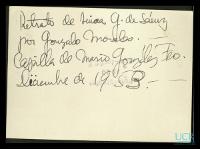 Retrato de Luisa G. de Sáenz
por Gonzalo Morales.—
Capilla de Mario González Feo.
Diciembre de 1953.—
UCR